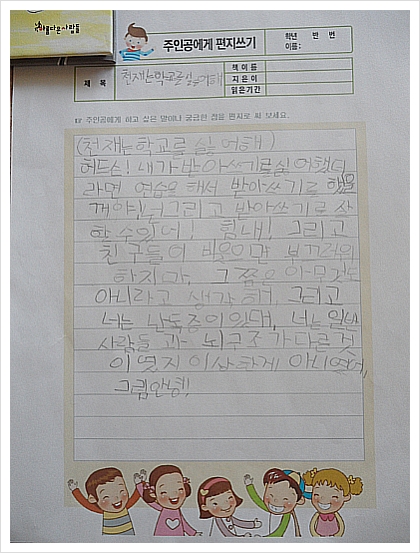 아름다운사람들
주인공에게 편지쓰기
학년 반 번
이름:
제 목
천재는학교를싫어해
책 이 름
지 은 이
읽은기간
☞ 주인공에게 하고 싶은 말이나 궁금한 점을 편지로 써 보세요.
(천재는학교를 싫어해)
허드슨! 내가 받아쓰기를싫어했더
라면 연습을 해서 받아쓰기를 했을
꺼야! 그리고 받아쓰기로 사
할수있어! 힘내! 그리고
친구들이 비웃으면 부끄러워
하지마, 그 쯤은 아무것도
아니라고 생각 해, 그리고
너는 난독증이있대, 너는 일반
사람들 과 뇌구조 가다른 것
이 였지 이상하게 아니였어,
그럼안녕!